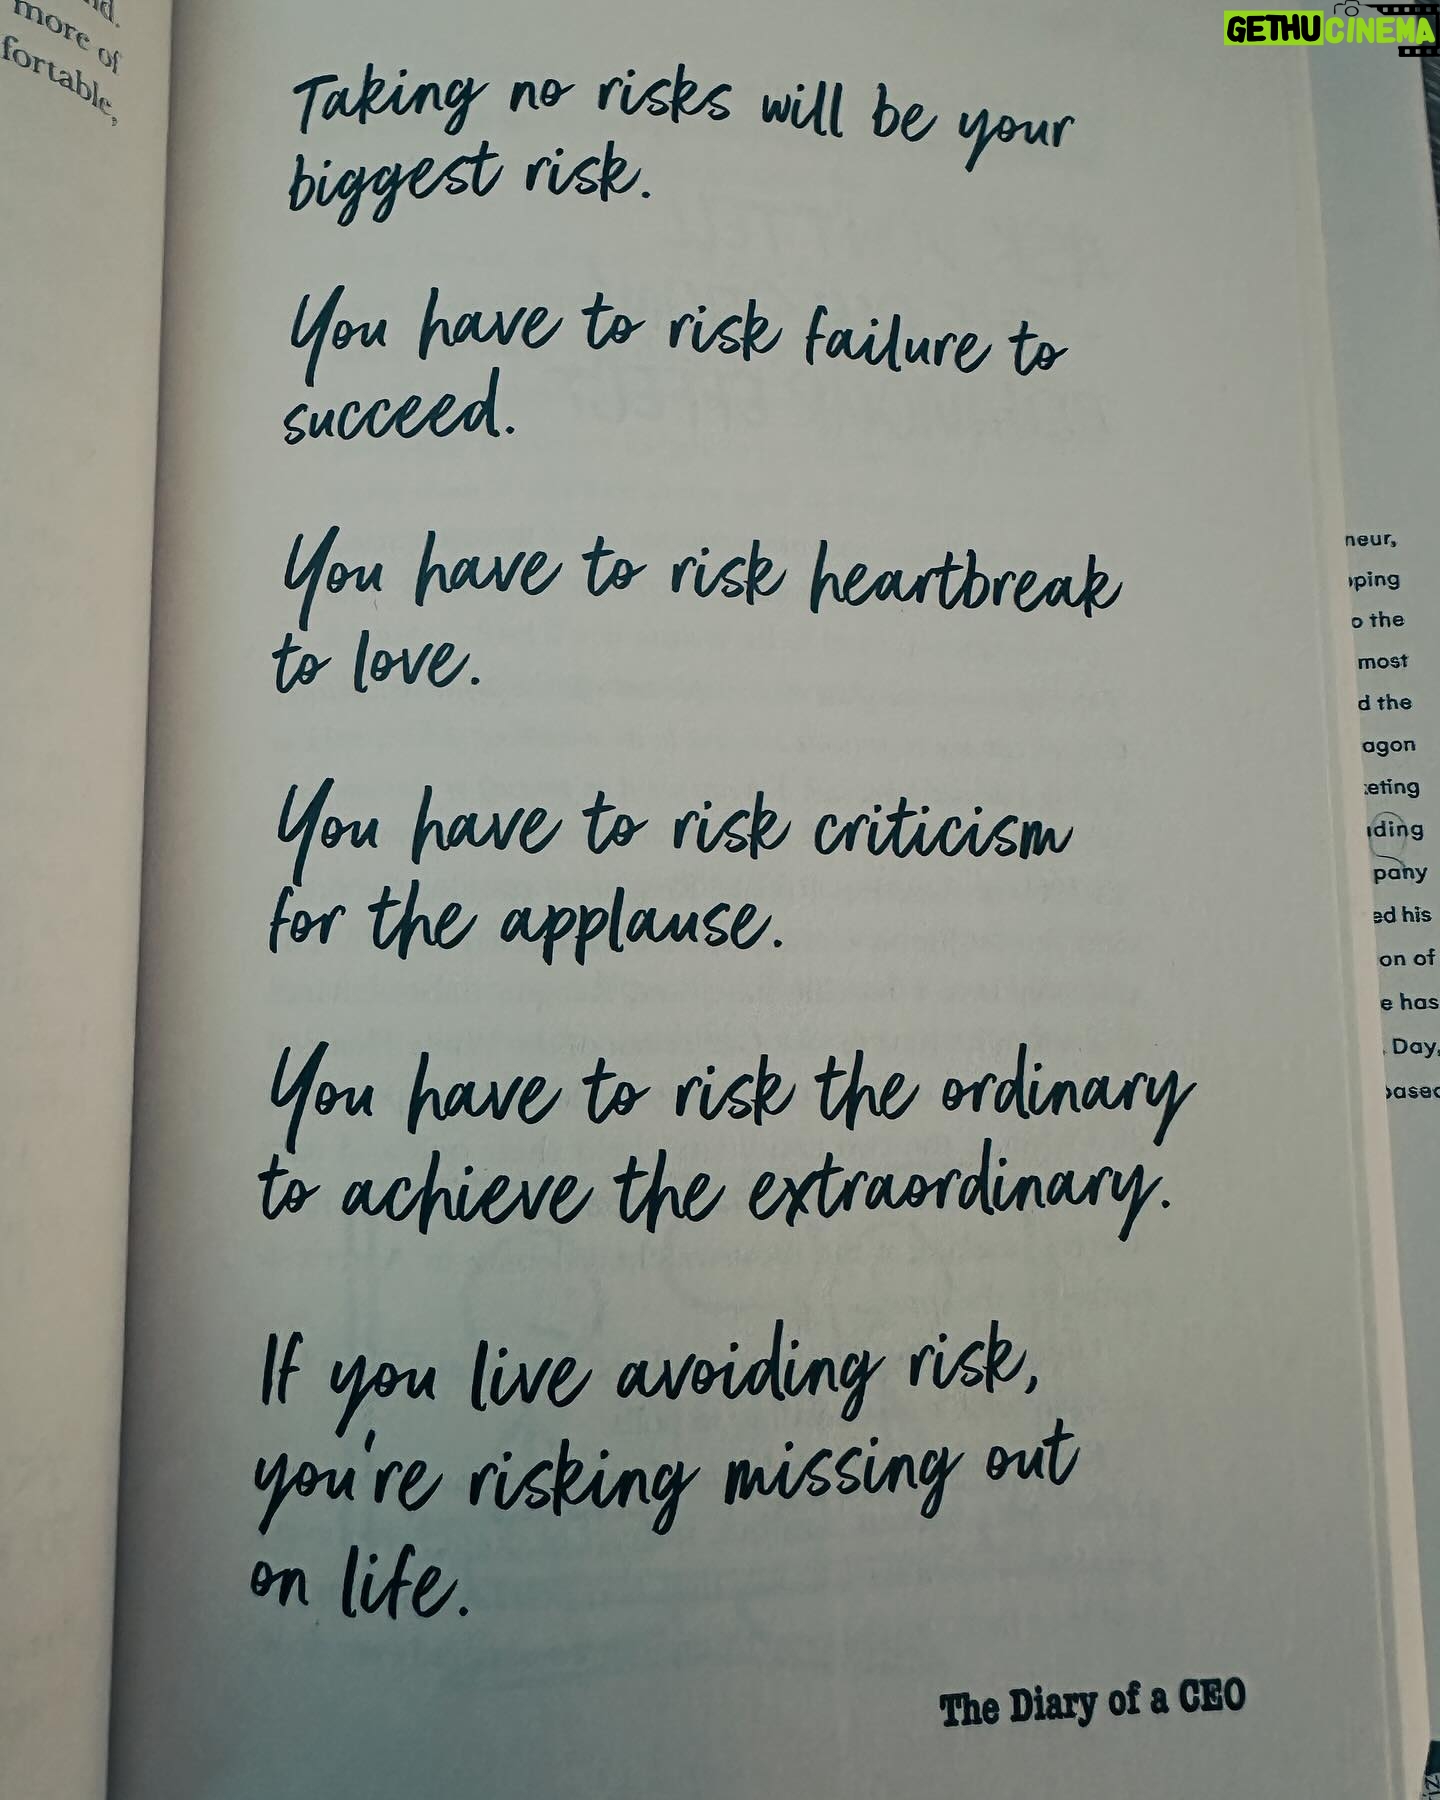 nd.
more of
fortable,
GETHUCINEMA
Taking no risks will be your
biggest risk.
You have to risk failure to
succeed.
You have to risk heartbreak
to love.
You have to risk criticism
for the applause.
You have to risk the ordinary
to achieve the extraordinary.
If you live avoiding risk,
you're risking missing out
on life.
The Diary of a CEO
neur,
pping
o the
most
d the
agon
keting
ding
pany
ed his
on of
e has
Day,
based